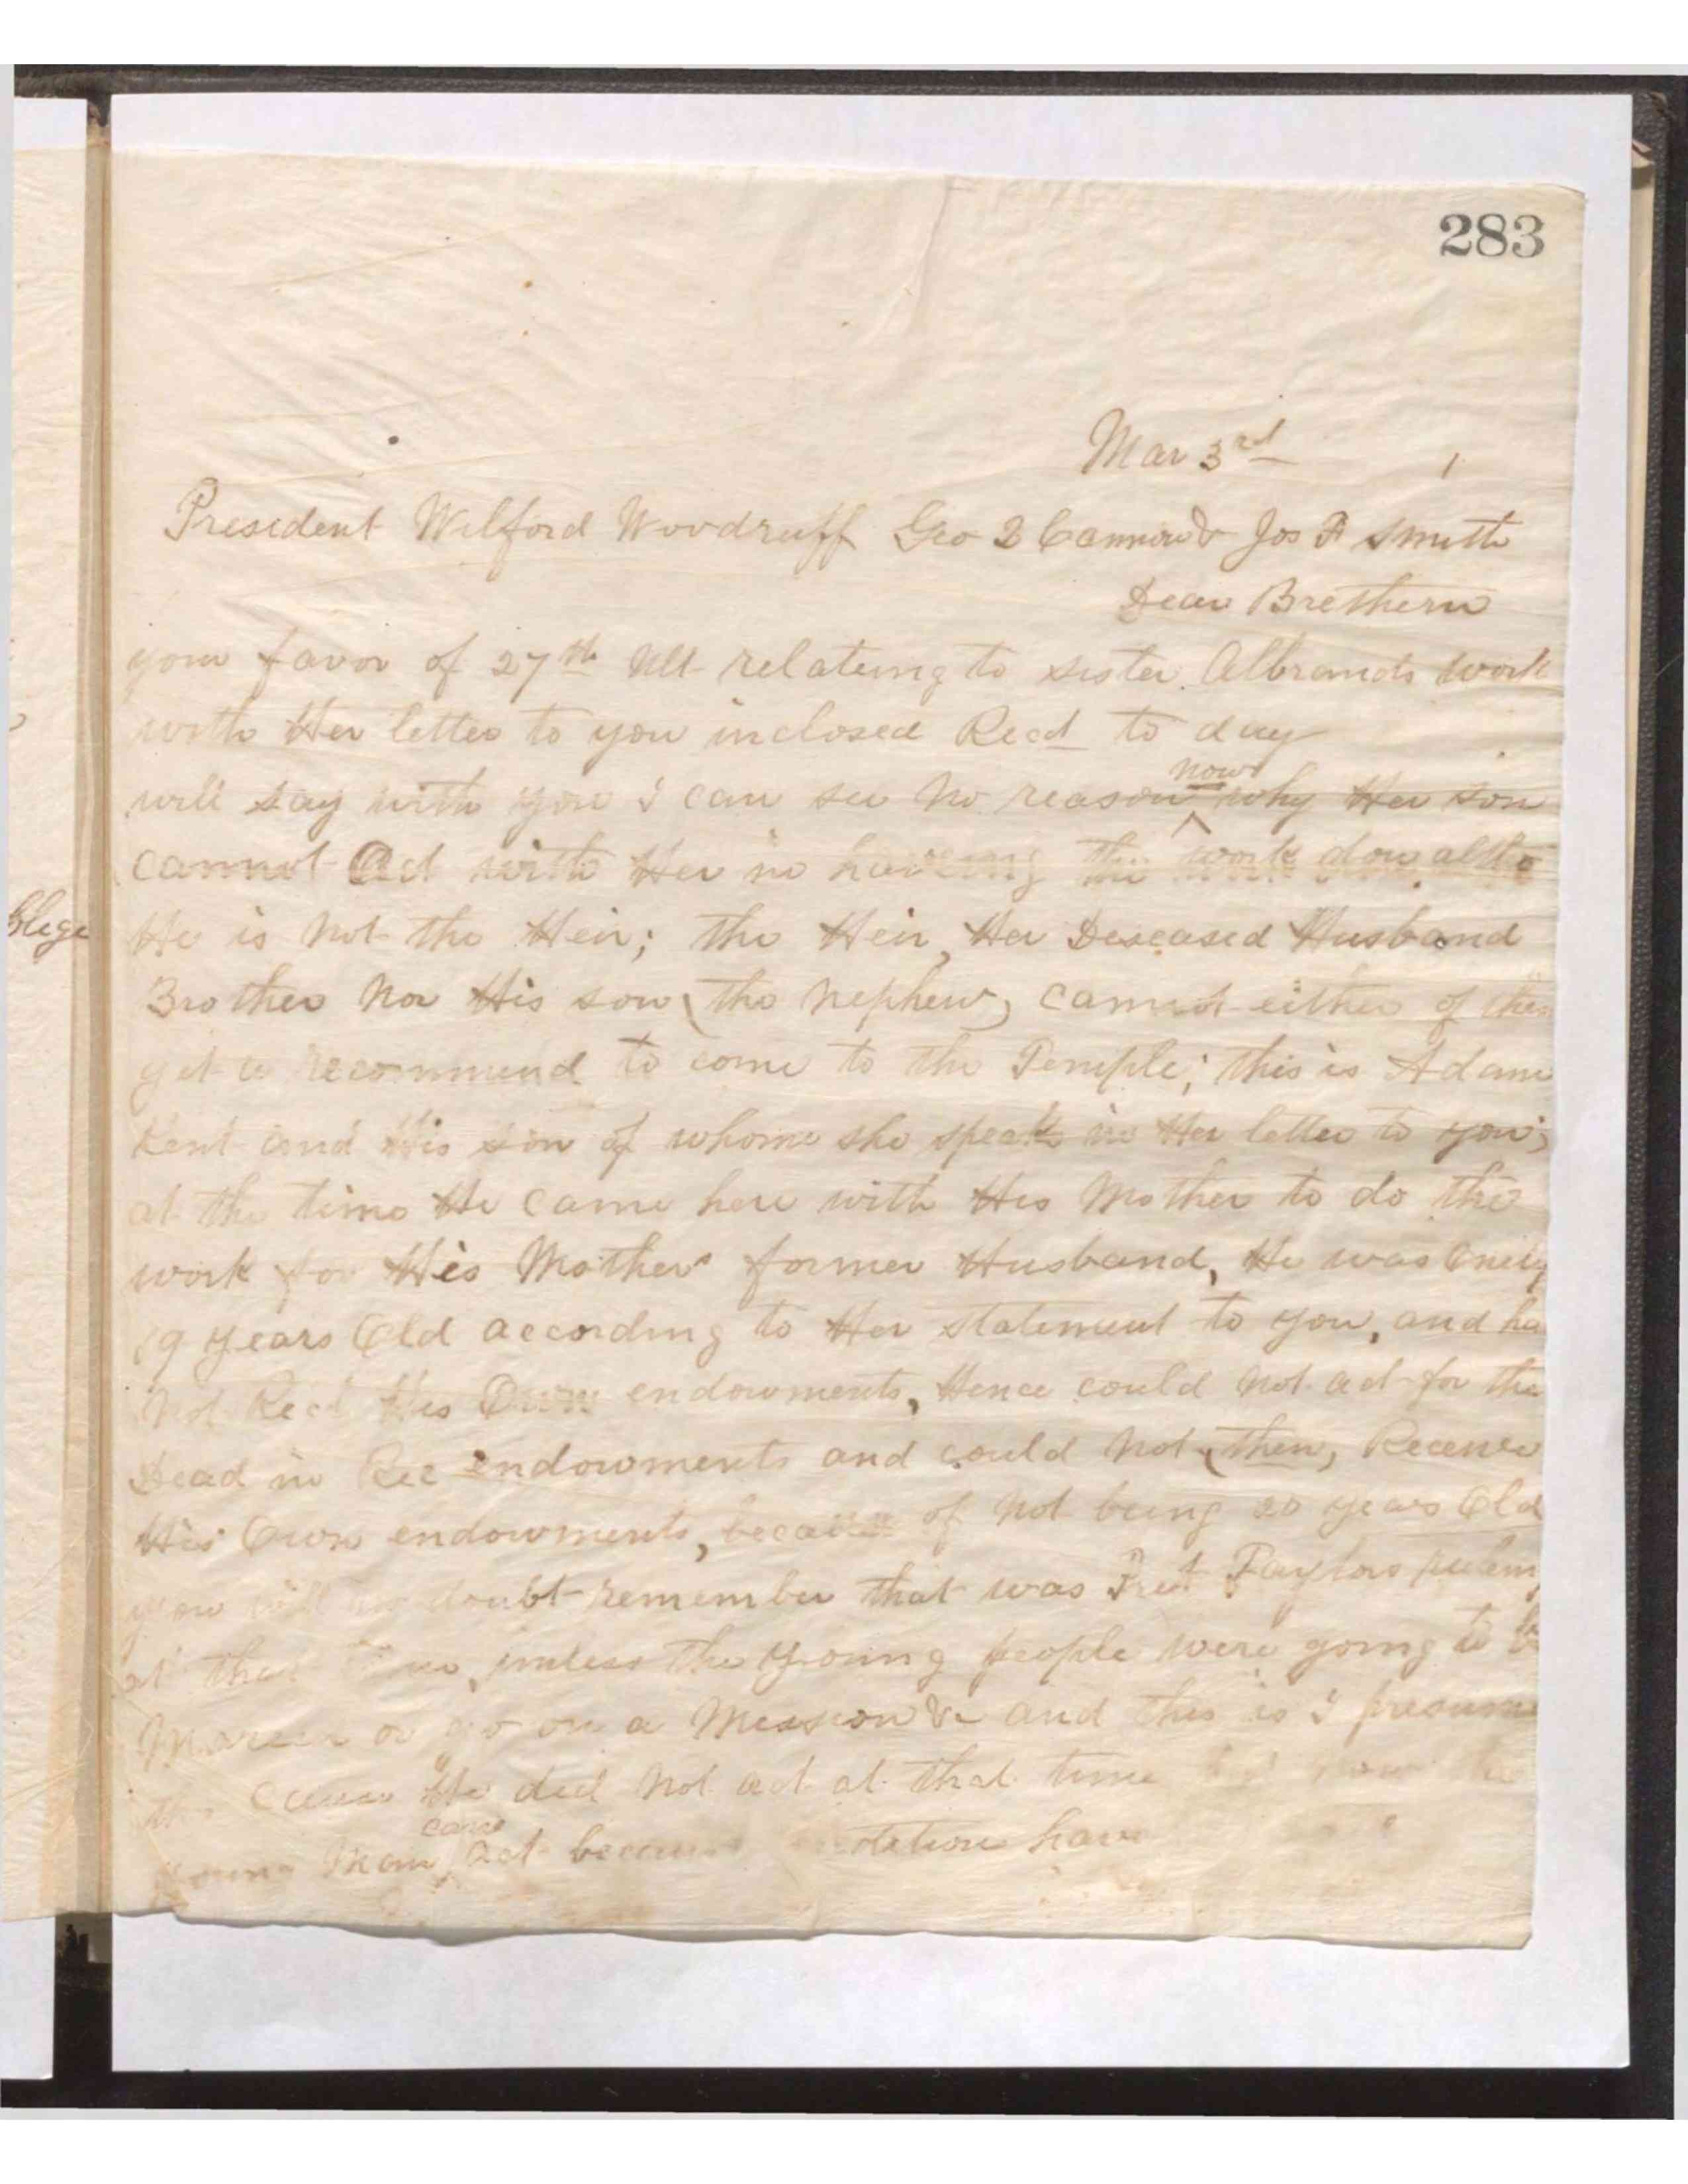 283
Mar 3rd 1
President Wilford Woodruff Geo Q Cannon & Jos F Smith
Dear Brethern
your favor of 27th Ult relateing to sister Albrands work
with Her letter to you inclosed Recd to day
now
will say with you I can see no reason why Her son
cannot Act with Her in haveing the work don altho
He is not the Heir; the Heir, Her Deseased Husband
Brother nor His son (the nephew) cannot either of them
get a recommend to come to the Temple; this is Adam
Kent and His son of whome she speaks in Her letter to you;
at the time He came here with His Mother to do the
work for His Mothers former Husband, He was Only
19 years Old according to Her statement to you, and ha
not Recd His Own endowments, Hence could not act for the
Dead in Rec endowments and could not (then) Receive
His Own endowments, because of not being 20 years Old
you will no doubt remember that was Prest Taylors
at that time, unless the young people were going to be
or go on a Mission &c and this is I presume
the cause He did not act at that time
can
young Man act because have
College